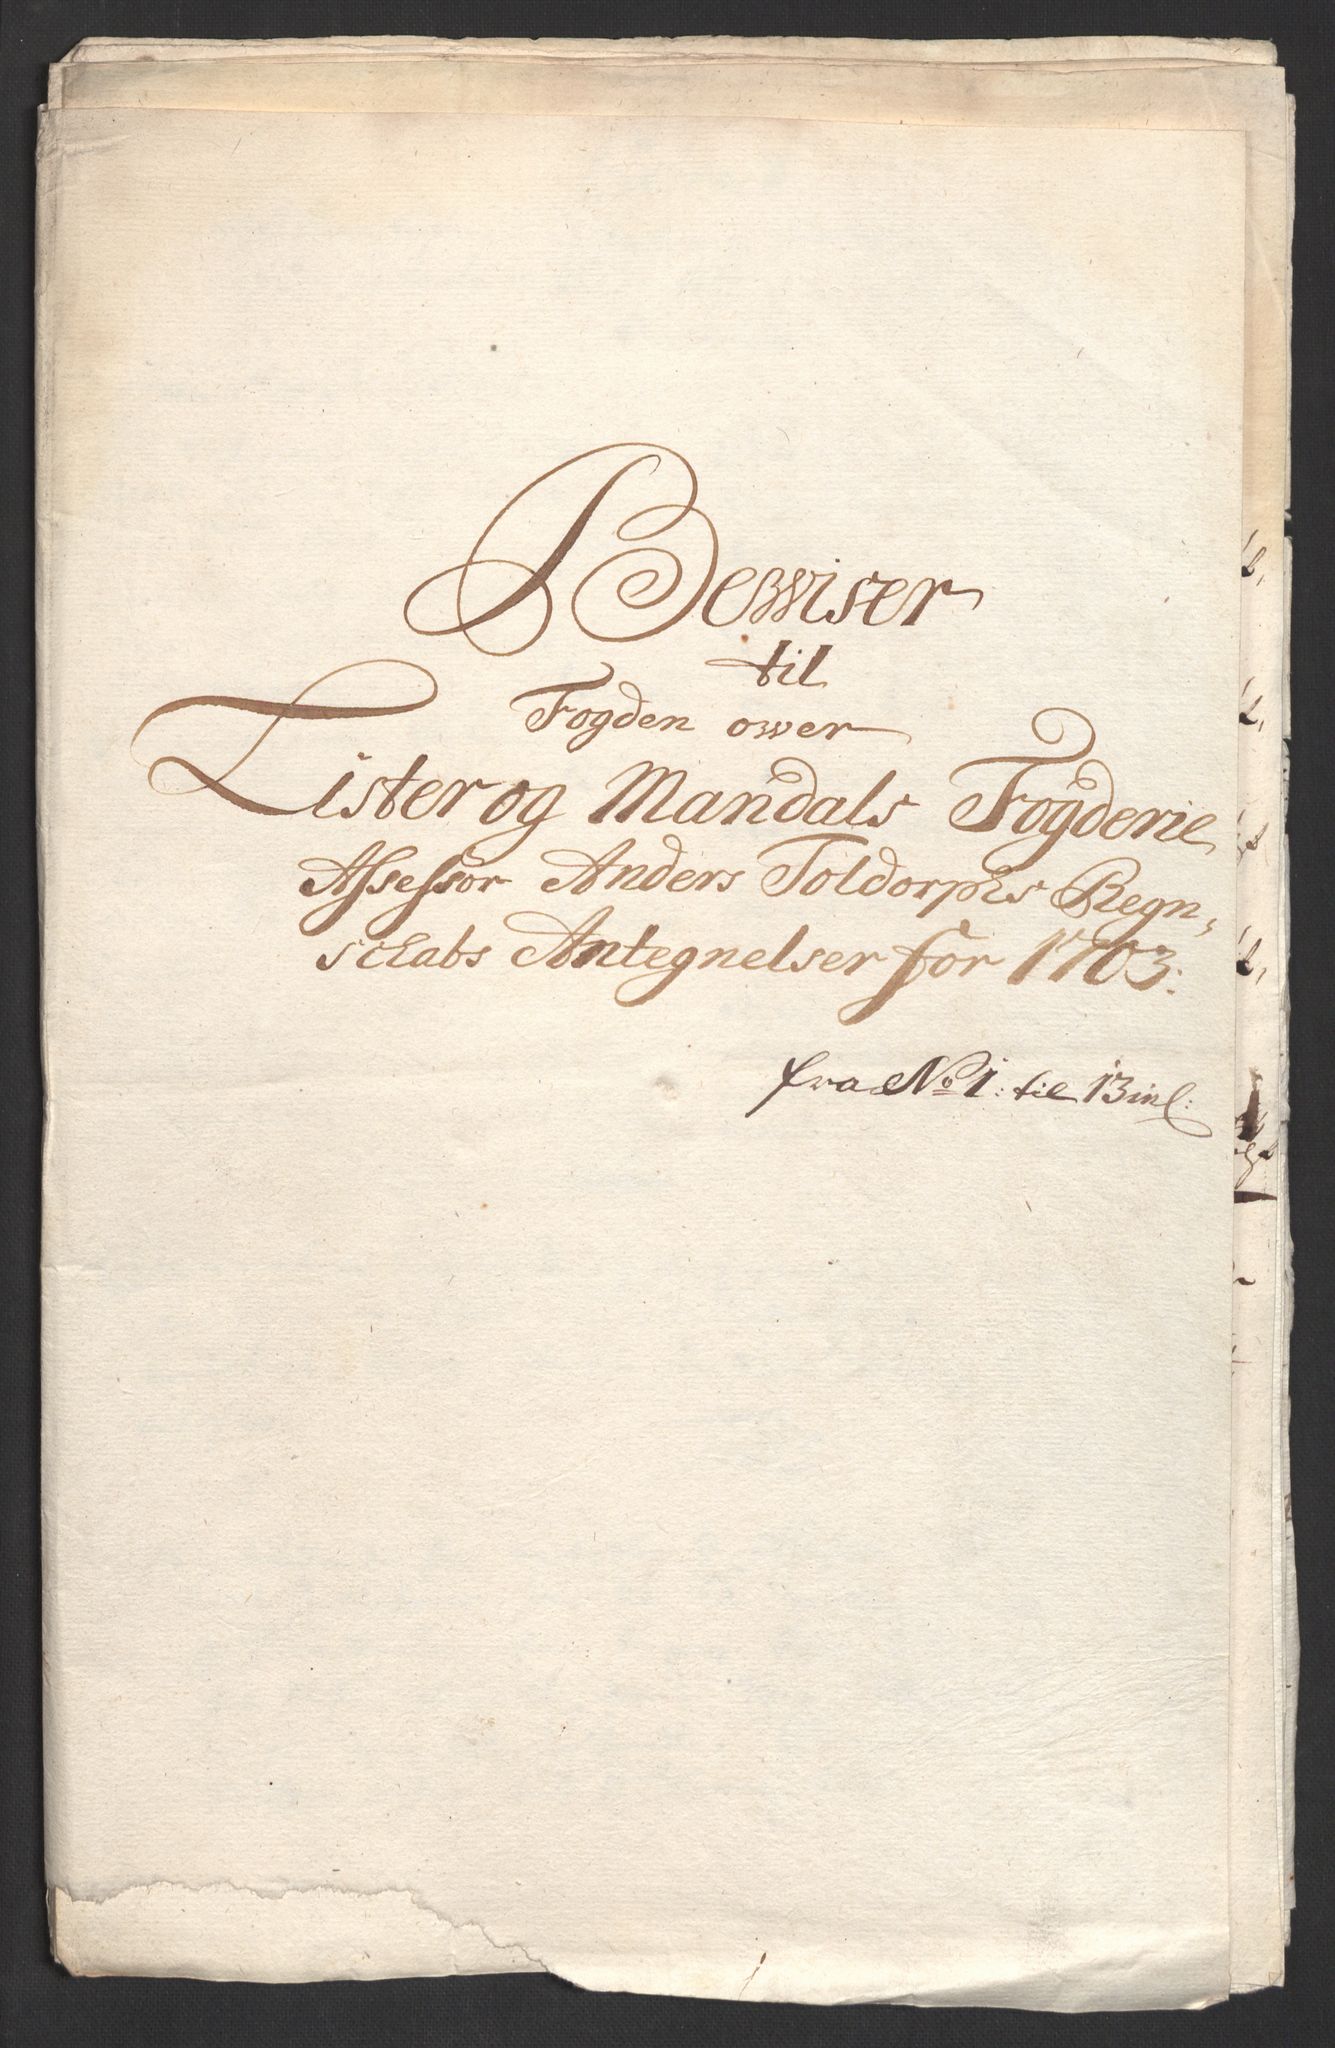 Bewiser
til
Fogden ower
Lister og Mandals Fogderie
Assessor Anders Toldorphs Regn,
skabs Antegnelser for 1703:
fra No 1: til 13 inl: